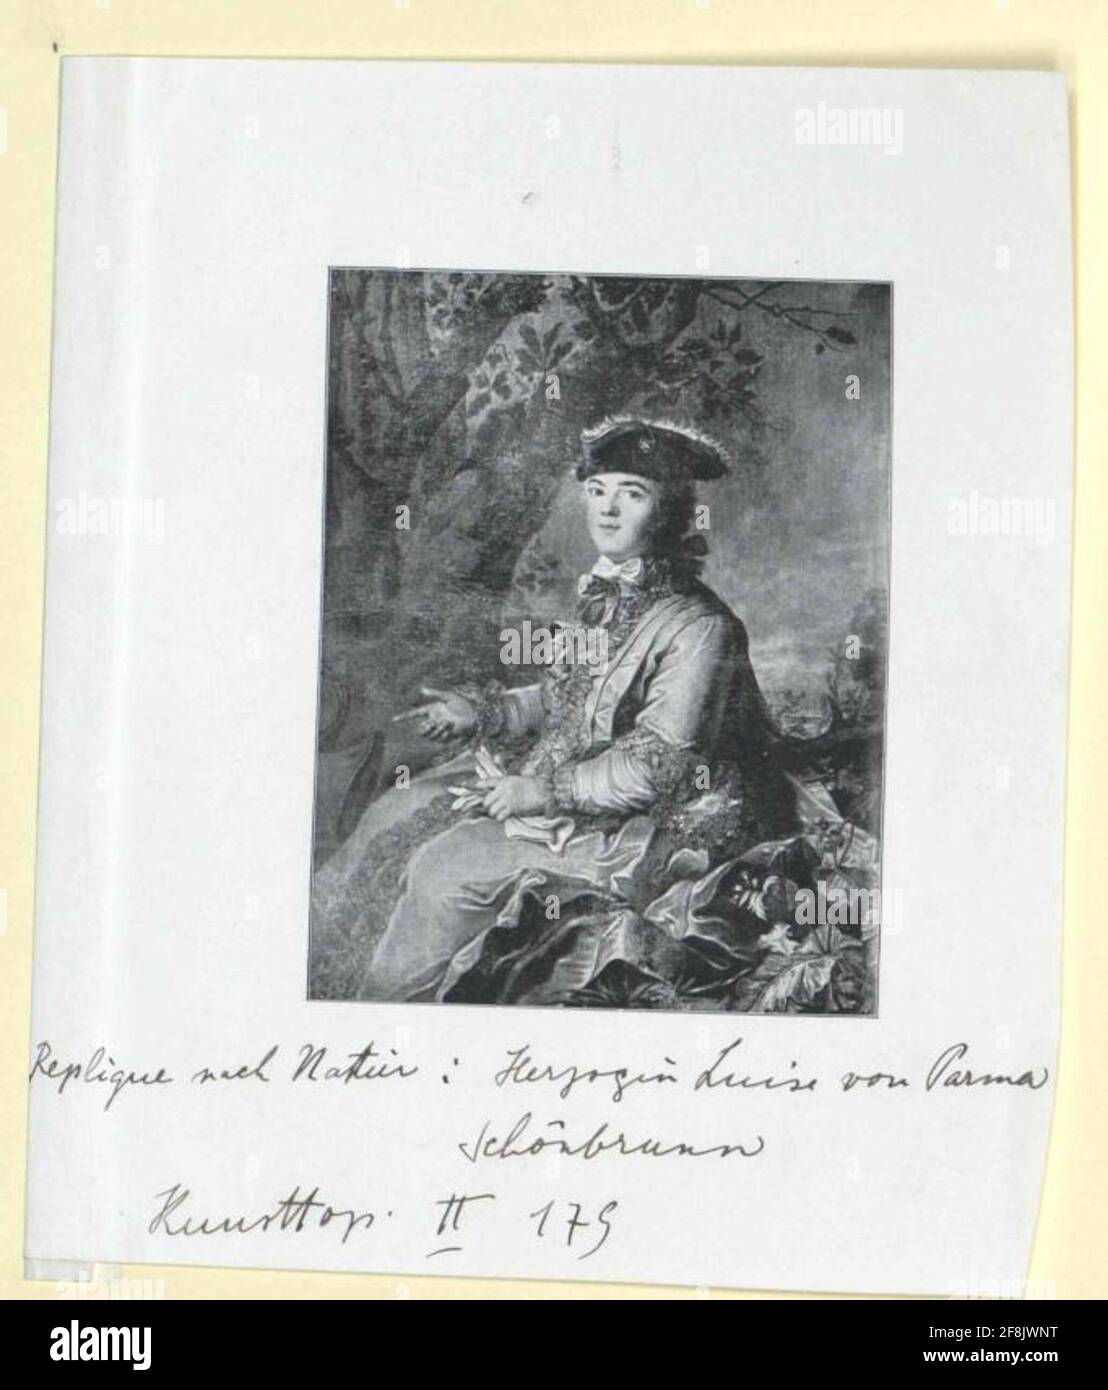 Replique nach Nattier : Herzogin Luise von Parma
Schönbrunn
Kunsttop. II 179
alamy
Image ID: 2F8JWNT
www.alamy.com